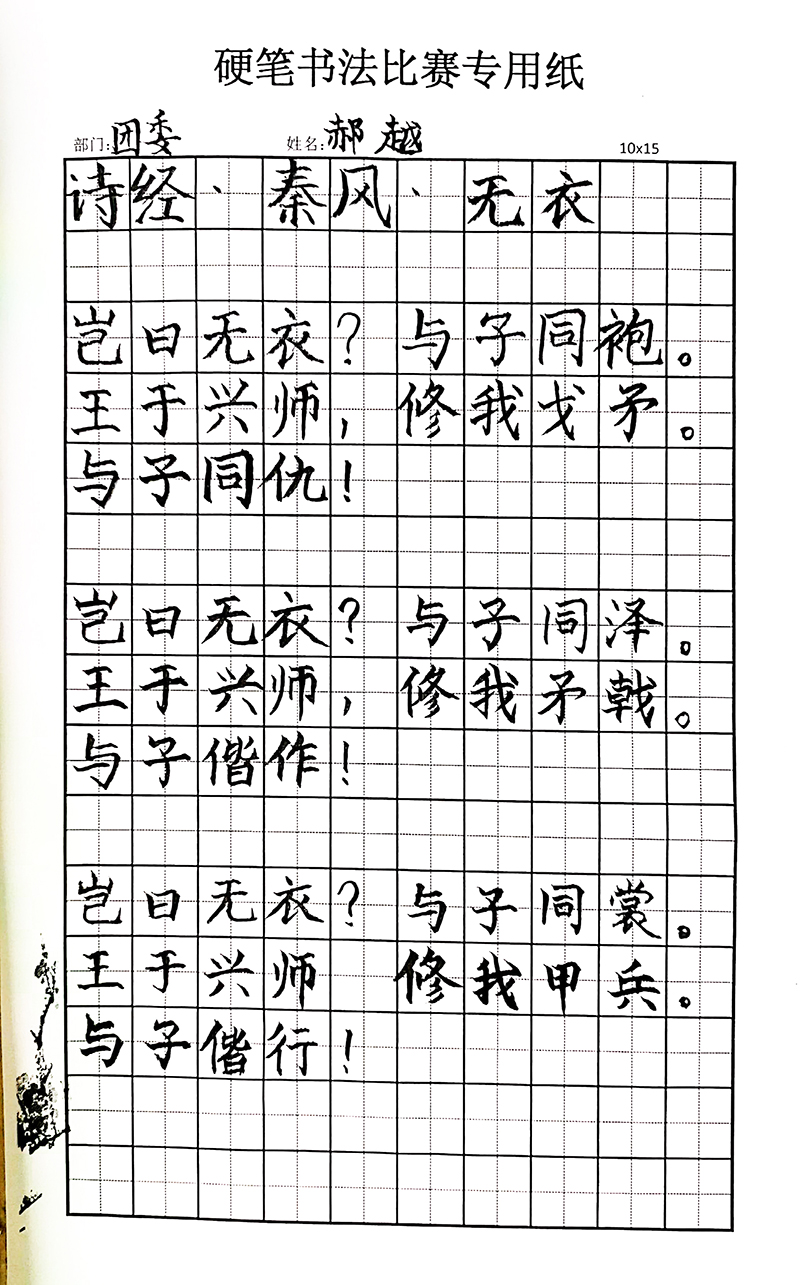 硬笔书法比赛专用纸
部门:团委 姓名:郝越 10x15
诗经·秦风·无衣
岂曰无衣？与子同袍。
王于兴师，修我戈矛。
与子同仇！
岂曰无衣？与子同泽。
王于兴师，修我矛戟。
与子偕作！
岂曰无衣？与子同裳。
王于兴师 修我甲兵。
与子偕行！